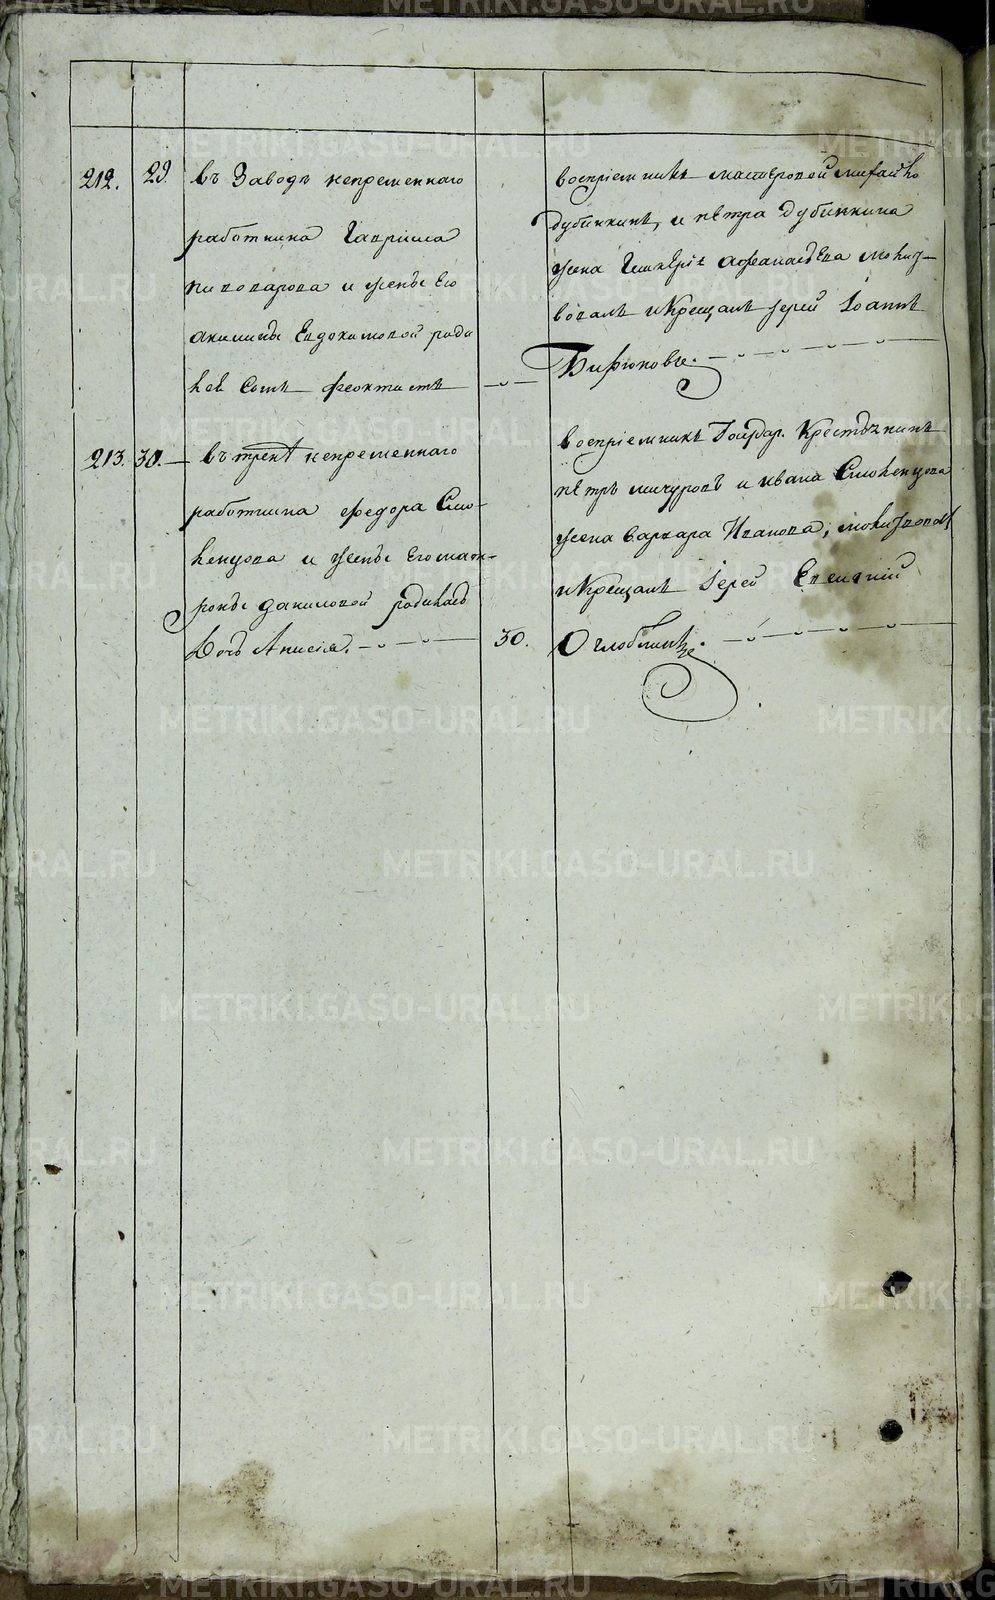 212. 29. въ Заводѣ непременнаго
работника Гаврiила
пивоварова и жены Его
акилины Евдокимовой роди
лся Сынъ Феоктистъ
воспрiемники мастеровой михайло
дубинкинъ, и пѣтра дубинкина
жена афанасьева молит-
вовалъ и Крещалъ iерей Iоаннъ
Бирюковъ.
213. 30. въ непременнаго
работника федора Смо-
ленцова и жены Его мат-
роны даниловой родилась
Дочь Анисiя.
30.
воспрiемники Государ. Крестьянинъ
пѣтръ мичуровъ и ивана Смоленцова
жена варвара Иванова, молитвовалъ
и Крещалъ Iерей Евгенiй
Оглоблинъ.
METRIKI.GASO-URAL.RU